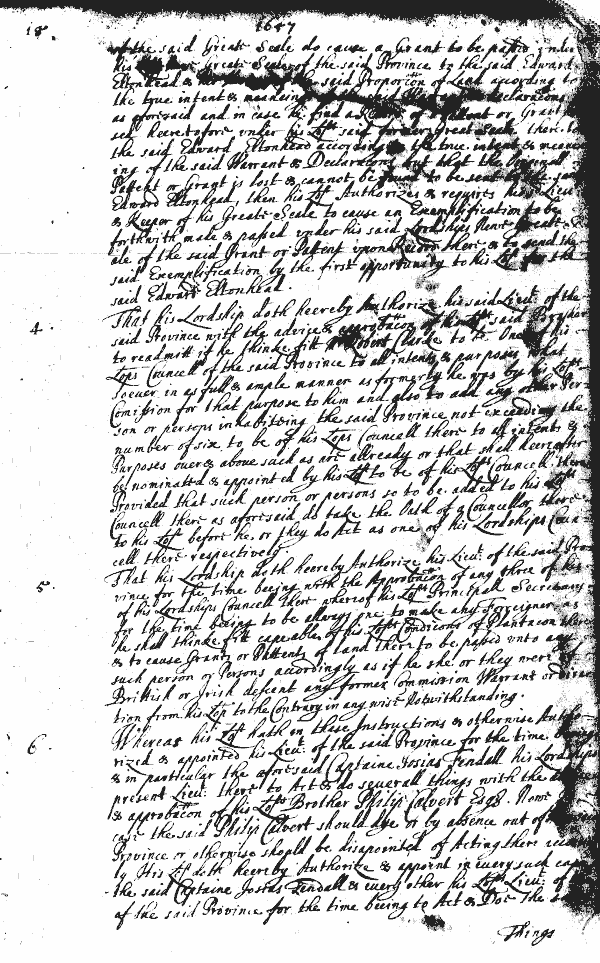 18.
1657
of the said Greate Seale do cause a Grant to be passed under
his Greate Seale of the said Province to the said Edward
Eltonhead & the said Proporcon of Land according to
the true intent & meaning Declaracons
as aforesaid and in case he find a Patent or Grant
sed heeretofore under his Lopps said former Great Seale there to
the said Edward Eltonhead according to the true intent & mean
ing of the said Warrant & Declaracons but that the Originall
Pattent or Grant is lost & cannot be found to be sent to the said
Edward Eltonhead, then his Lopp Authorizes & requires his Lieut
& Keeper of his Greate Seale to cause an Exemplification to be
forthwith made & passed under his said Lordships Newe Greate
ale of the said Grant or Pattent upon Record there & to send the
said Exemplification by the first opportunity to his Lopp for the
said Edward Eltonhead.
4. That his Lordship doth heereby Authorize his said Lieut of the
said Province with the advice & approbacon of him his said Brother
to readmitt if he thinke fitt Robert Clarke to be One of his
Lopps Councell of the said Province to all intents & purposes what
soever in as full & ample manner as formerly he was by his Lopps
Comission for that purpose to him and also to add any other Per
son or persons inhabitting the said Province not exceeding the
number of six to be of his Lopps Councell there to all intents &
Purposes over & above such as are allready or that shall heereafter
be nominated & appointed by his Lopp to be of his Lopps Councell there
Provided that such person or persons so to be added to his Lopps
Councell there as aforesaid do take the Oath of a Councellor there
to his Lopp before he or they do Act as one of his Lordships Coun
cell there respectively
5. That his Lordship doth heereby Authorize his Lieut of the said Pro
vince for the time beeing with the Approbacon of any three of his
of his Lordships Councell there whereof his Lopps Principall Secretary
for the time beeing to be allways one to make any Forreigner as
he shall thinke fitt capeable of his Lopps Condicons of Plantacon there
& to cause Grants or Pattents of land there to be passed unto any
such person or Persons accordingly as if he she or they were of
Brittish or Irish descent any former Commission Warrant or direc
tion from his Lopp to the Contrary in any wise Notwithstanding.
6. Whereas his Lopp hath in these Instructions & otherwise Autho
rized & appointed his Lieut of the said Province for the time being
& in particular the aforesaid Captaine Josias Fendall his Lordships
present Lieut there to Act & do severall things with the advice
& approbacon of his Lopps Brother Philip Calvert Esqr. Nowe
case the said Philip Calvert should dye or by absence out of the said
Province or otherwise should be disapointed of Acting there
ly His Lopp doth heereby Authorize & appoint in every such case
the said Captaine Josias Fendall & every other his Lopps Lieut of
of the said Province for the time beeing to Act & Doe the
Things